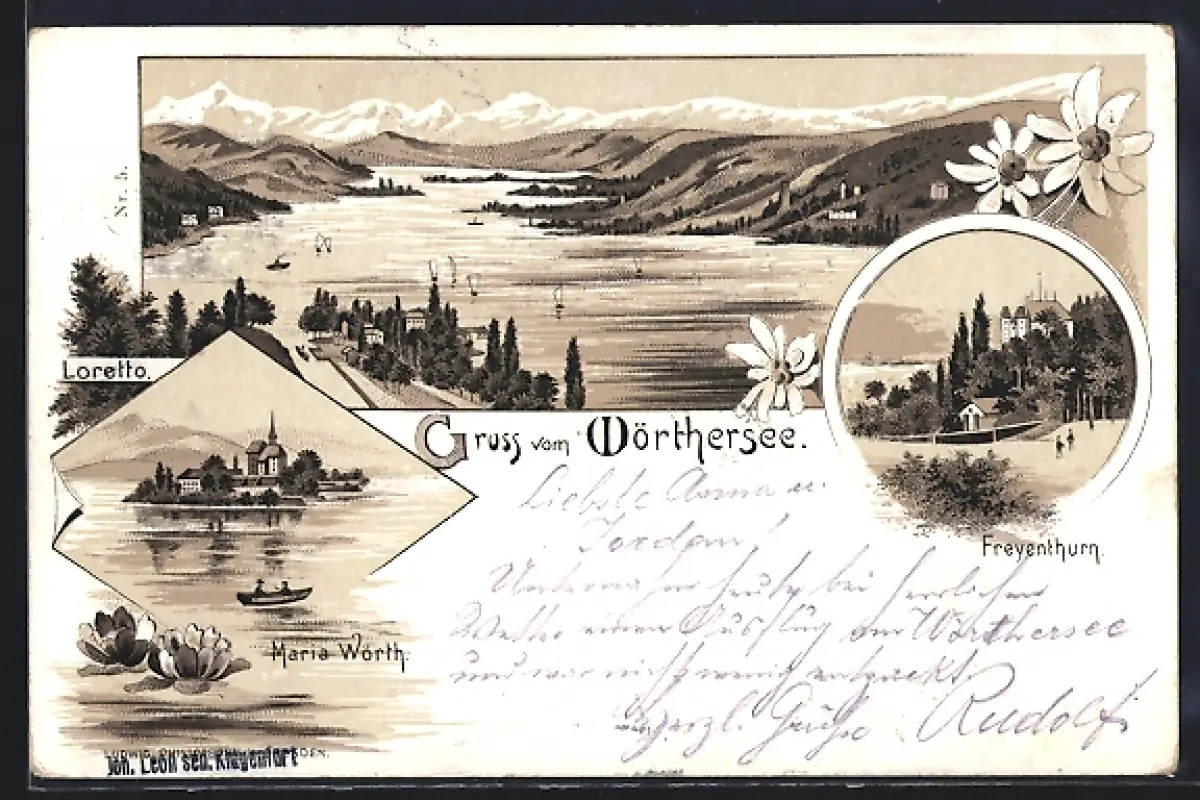 Nr. 1.
Loretto.
Gruss vom Wörthersee.
Freyenthurn.
Maria Wörth.
Liebste Anna u.
Jordan!
Unternahm heute bei herrlichem
Wetter einen Ausflug am Wörthersee
und war nicht wenig entzückt
Herzl. Grüße Rudolf
LUDWIG DRESDEN.
Joh. Leon sen. Klagenfurt